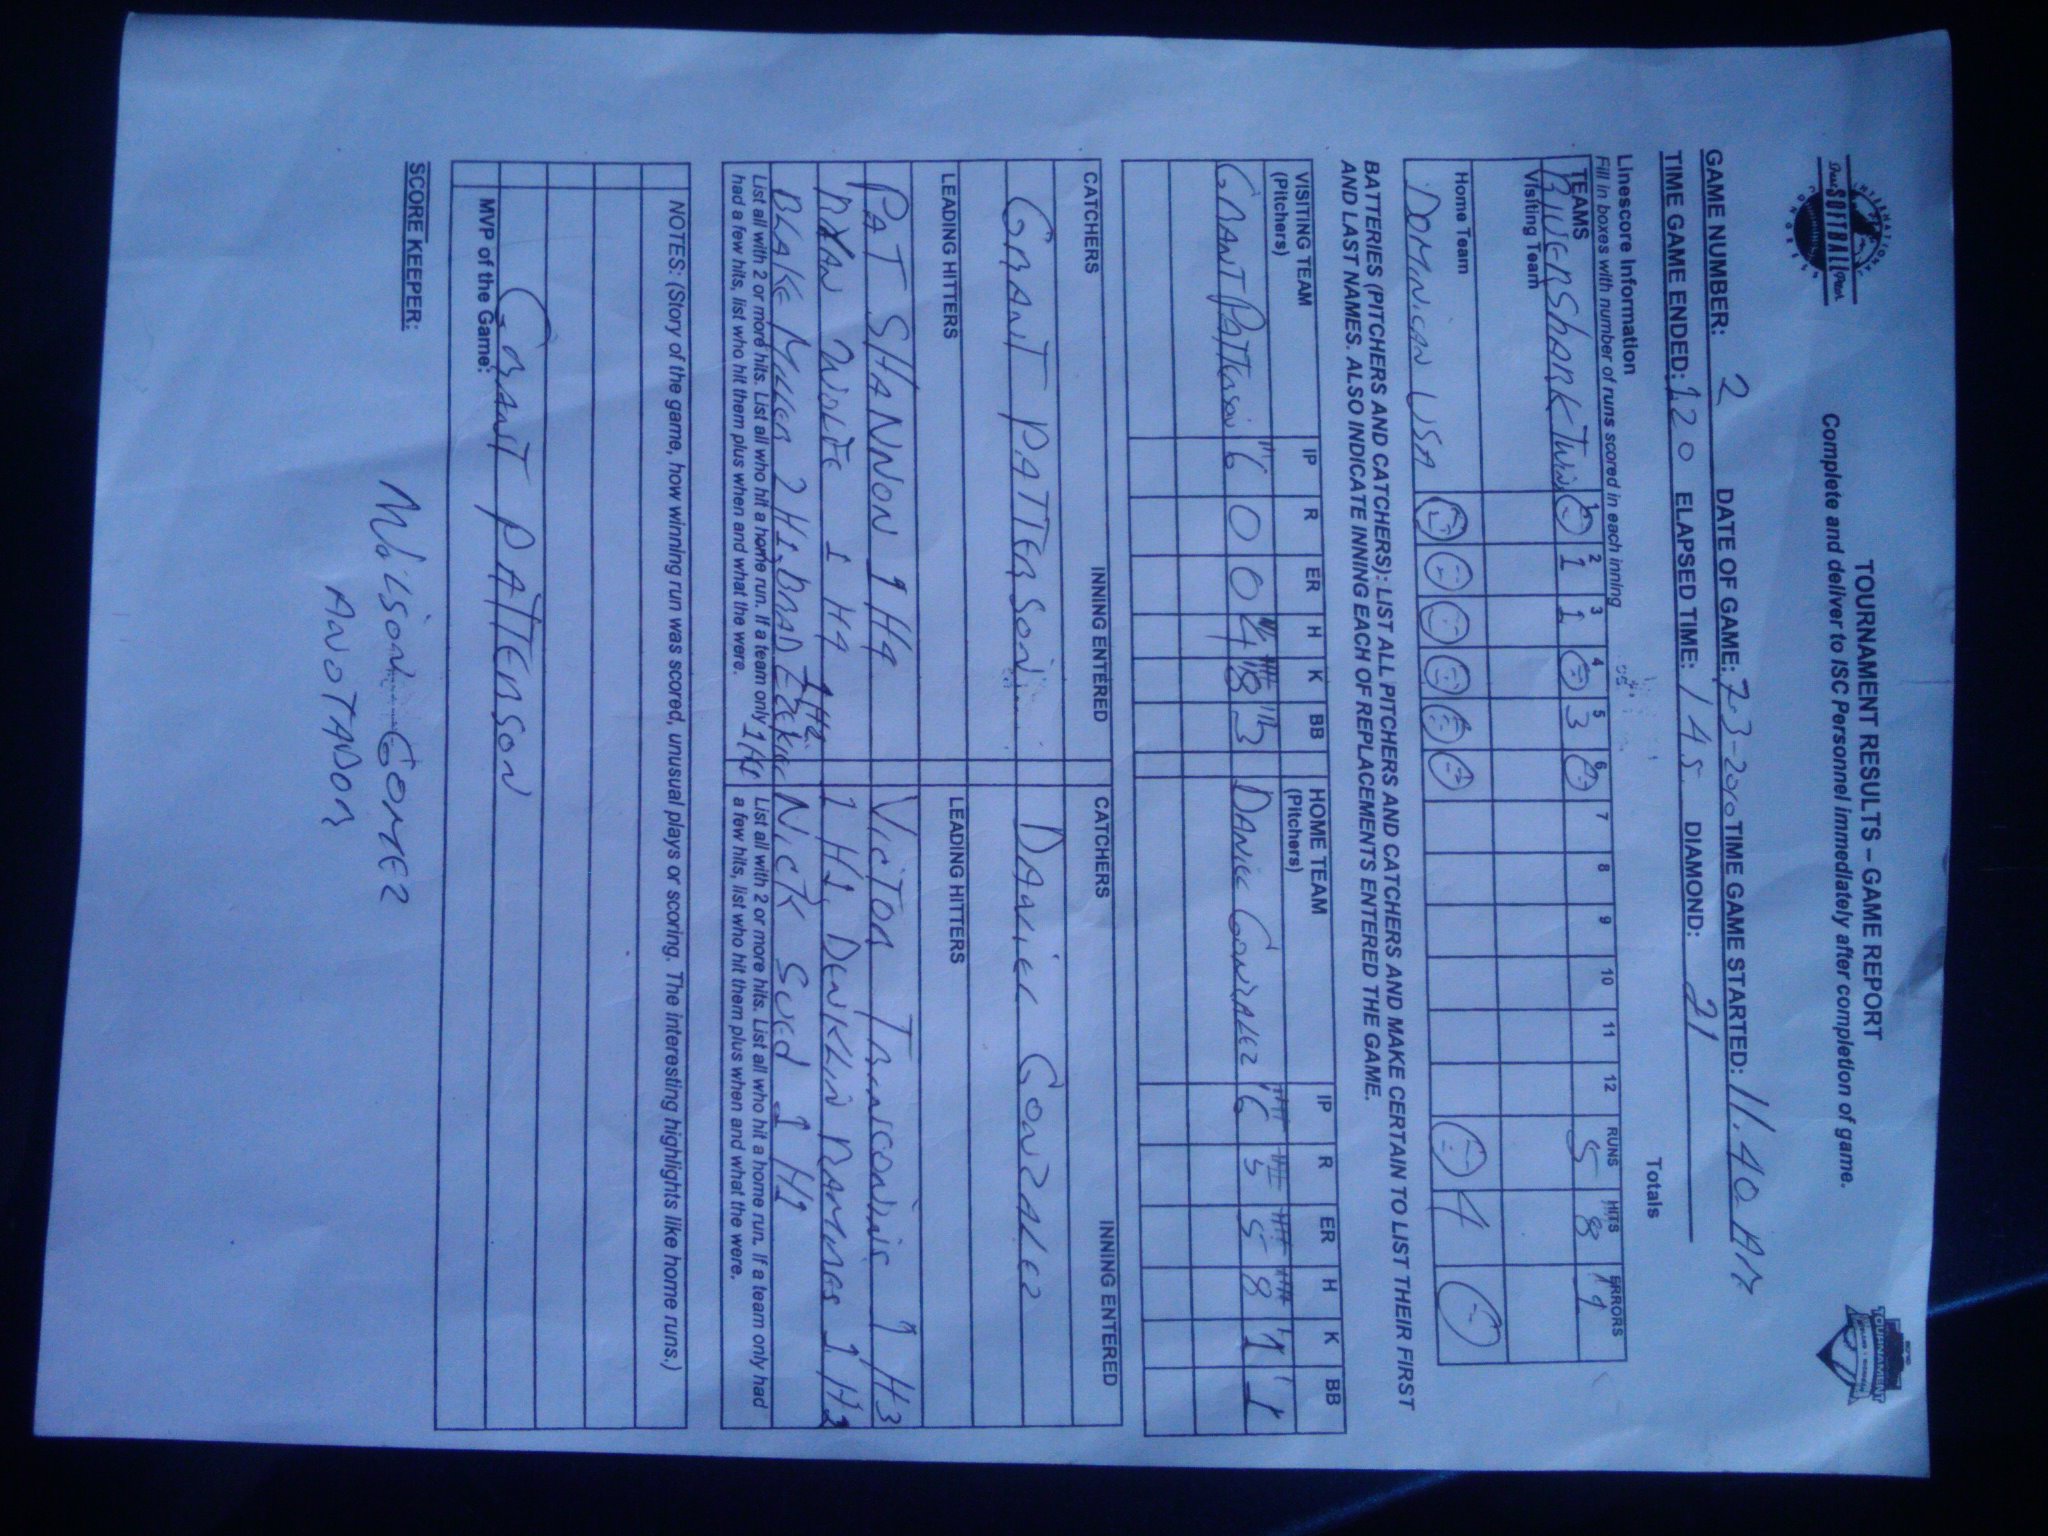 INTERNATIONAL
SOFTBALL
CONGRESS
TOURNAMENT RESULTS – GAME REPORT
Complete and deliver to ISC Personnel immediately after completion of game.
TOURNAMENT
GAME NUMBER: 2 DATE OF GAME: 7-3-2010 TIME GAME STARTED: 11.40 AM
TIME GAME ENDED: 1.20 ELAPSED TIME: 1 45 DIAMOND: 21
Linescore Information Totals
Fill in boxes with number of runs scored in each inning
TEAMS 1 2 3 4 5 6 7 8 9 10 11 12 RUNS HITS ERRORS
Visiting Team
RiverShark Twins 1 1 3 5 8 1
Home Team
DOMINICAN USA 4
BATTERIES (PITCHERS AND CATCHERS): LIST ALL PITCHERS AND CATCHERS AND MAKE CERTAIN TO LIST THEIR FIRST
AND LAST NAMES. ALSO INDICATE INNING EACH OF REPLACEMENTS ENTERED THE GAME.
VISITING TEAM (Pitchers) IP R ER H K BB HOME TEAM (Pitchers) IP R ER H K BB
GRANT PATTERSON 6 0 0 4 8 3 DANIEL GONZALEZ 6 5 5 8 1 1
CATCHERS INNING ENTERED CATCHERS INNING ENTERED
GRANT PATTERSON DANIEL GONZALEZ
LEADING HITTERS LEADING HITTERS
PAT SHANNON 1 H4 VICTOR 1 H3
RYAN WOLFE 1 H4 1 H1, RAMIRES 1 H2
BLAKE MILLER 2 H1, BRAD 1 H2 NICK SUED 1 H1
List all with 2 or more hits. List all who hit a home run. If a team only had a few hits, list who hit them plus when and what the were.
List all with 2 or more hits. List all who hit a home run. If a team only had a few hits, list who hit them plus when and what the were.
NOTES: (Story of the game, how winning run was scored, unusual plays or scoring. The interesting highlights like home runs.)
GRANT PATTERSON
MVP of the Game:
SCORE KEEPER:
Wilson Gomez
ANOTADOR